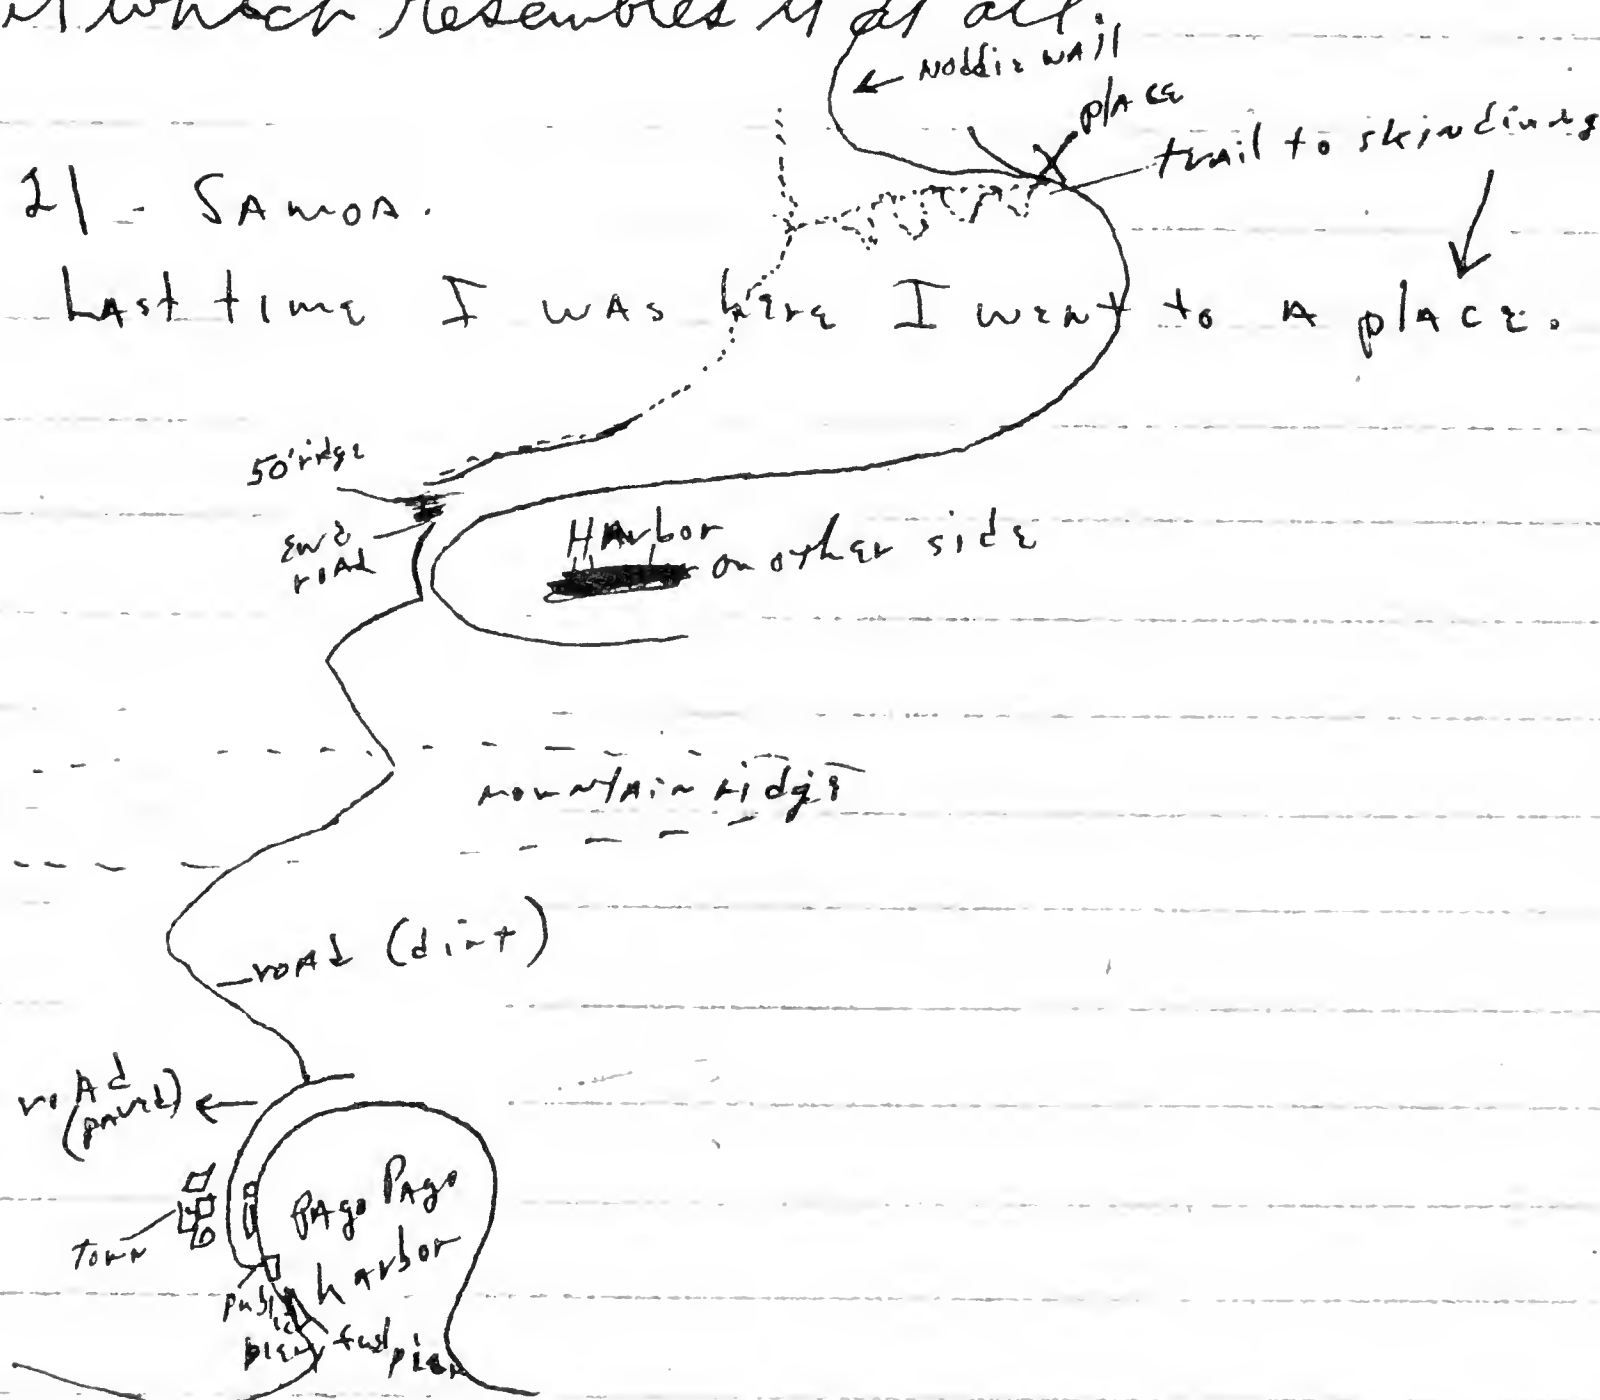 which resembles it at all.
Noddie wall
place
trail to skindiving
21 - SAMOA.
Last time I was here I went to a place.
50' ridge
end
road
Harbor
on other side
mountain ridge
road (dirt)
road
(paved)
Pago Pago
harbor
Town
public
pier
fuel
pier